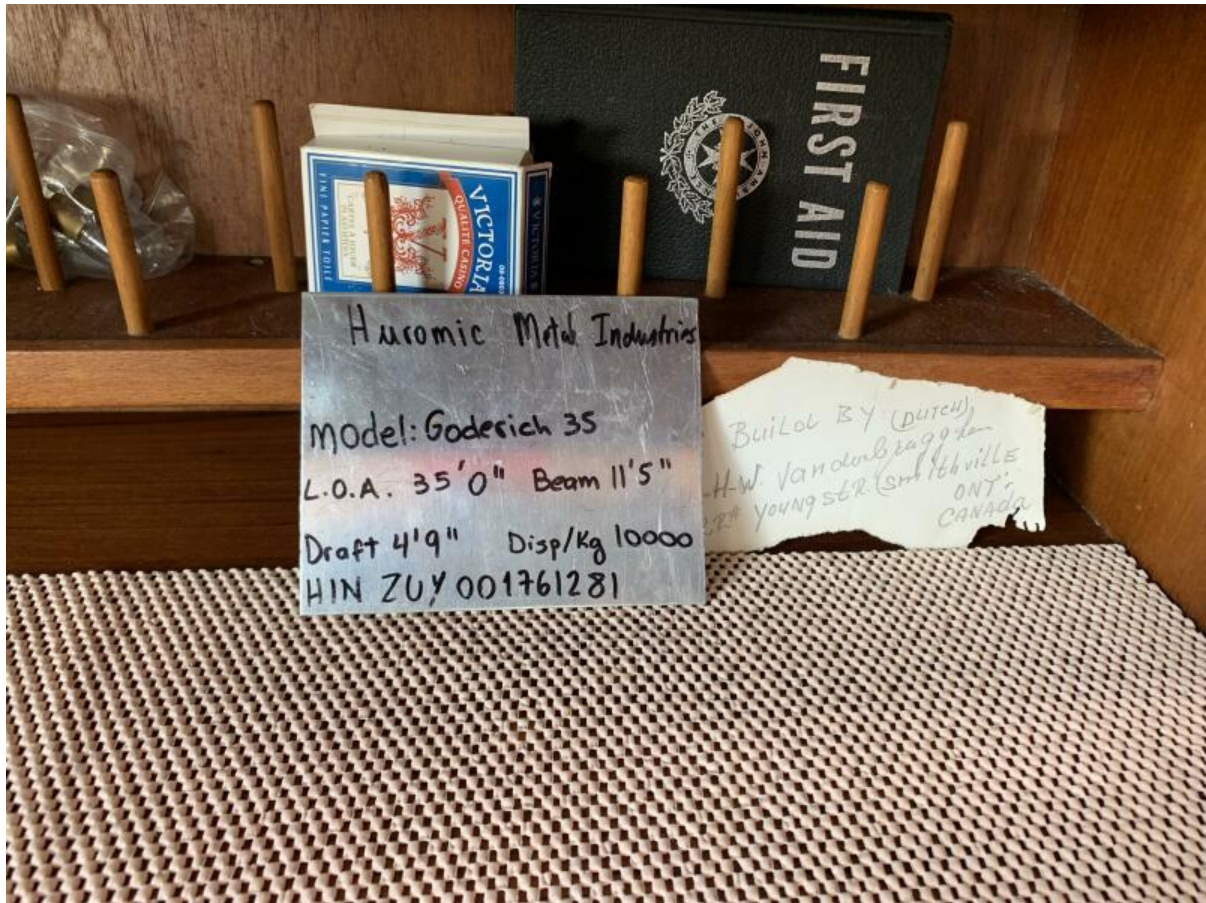 FIRST AID
VICTORIA
QUALITÉ CASINO
VICTORIA
FINI PAPIER TOILE
CARTES À JOUER
Huromic Metal Industries
Model: Goderich 35
L.O.A. 35'0" Beam 11'5"
Draft 4'9" Disp/Kg 10000
HIN ZUY001761281
BUILD BY (DUTCH)
H-W. Vanderbruggen
YOUNG STR. (SMITHVILLE
ONT.
CANADA